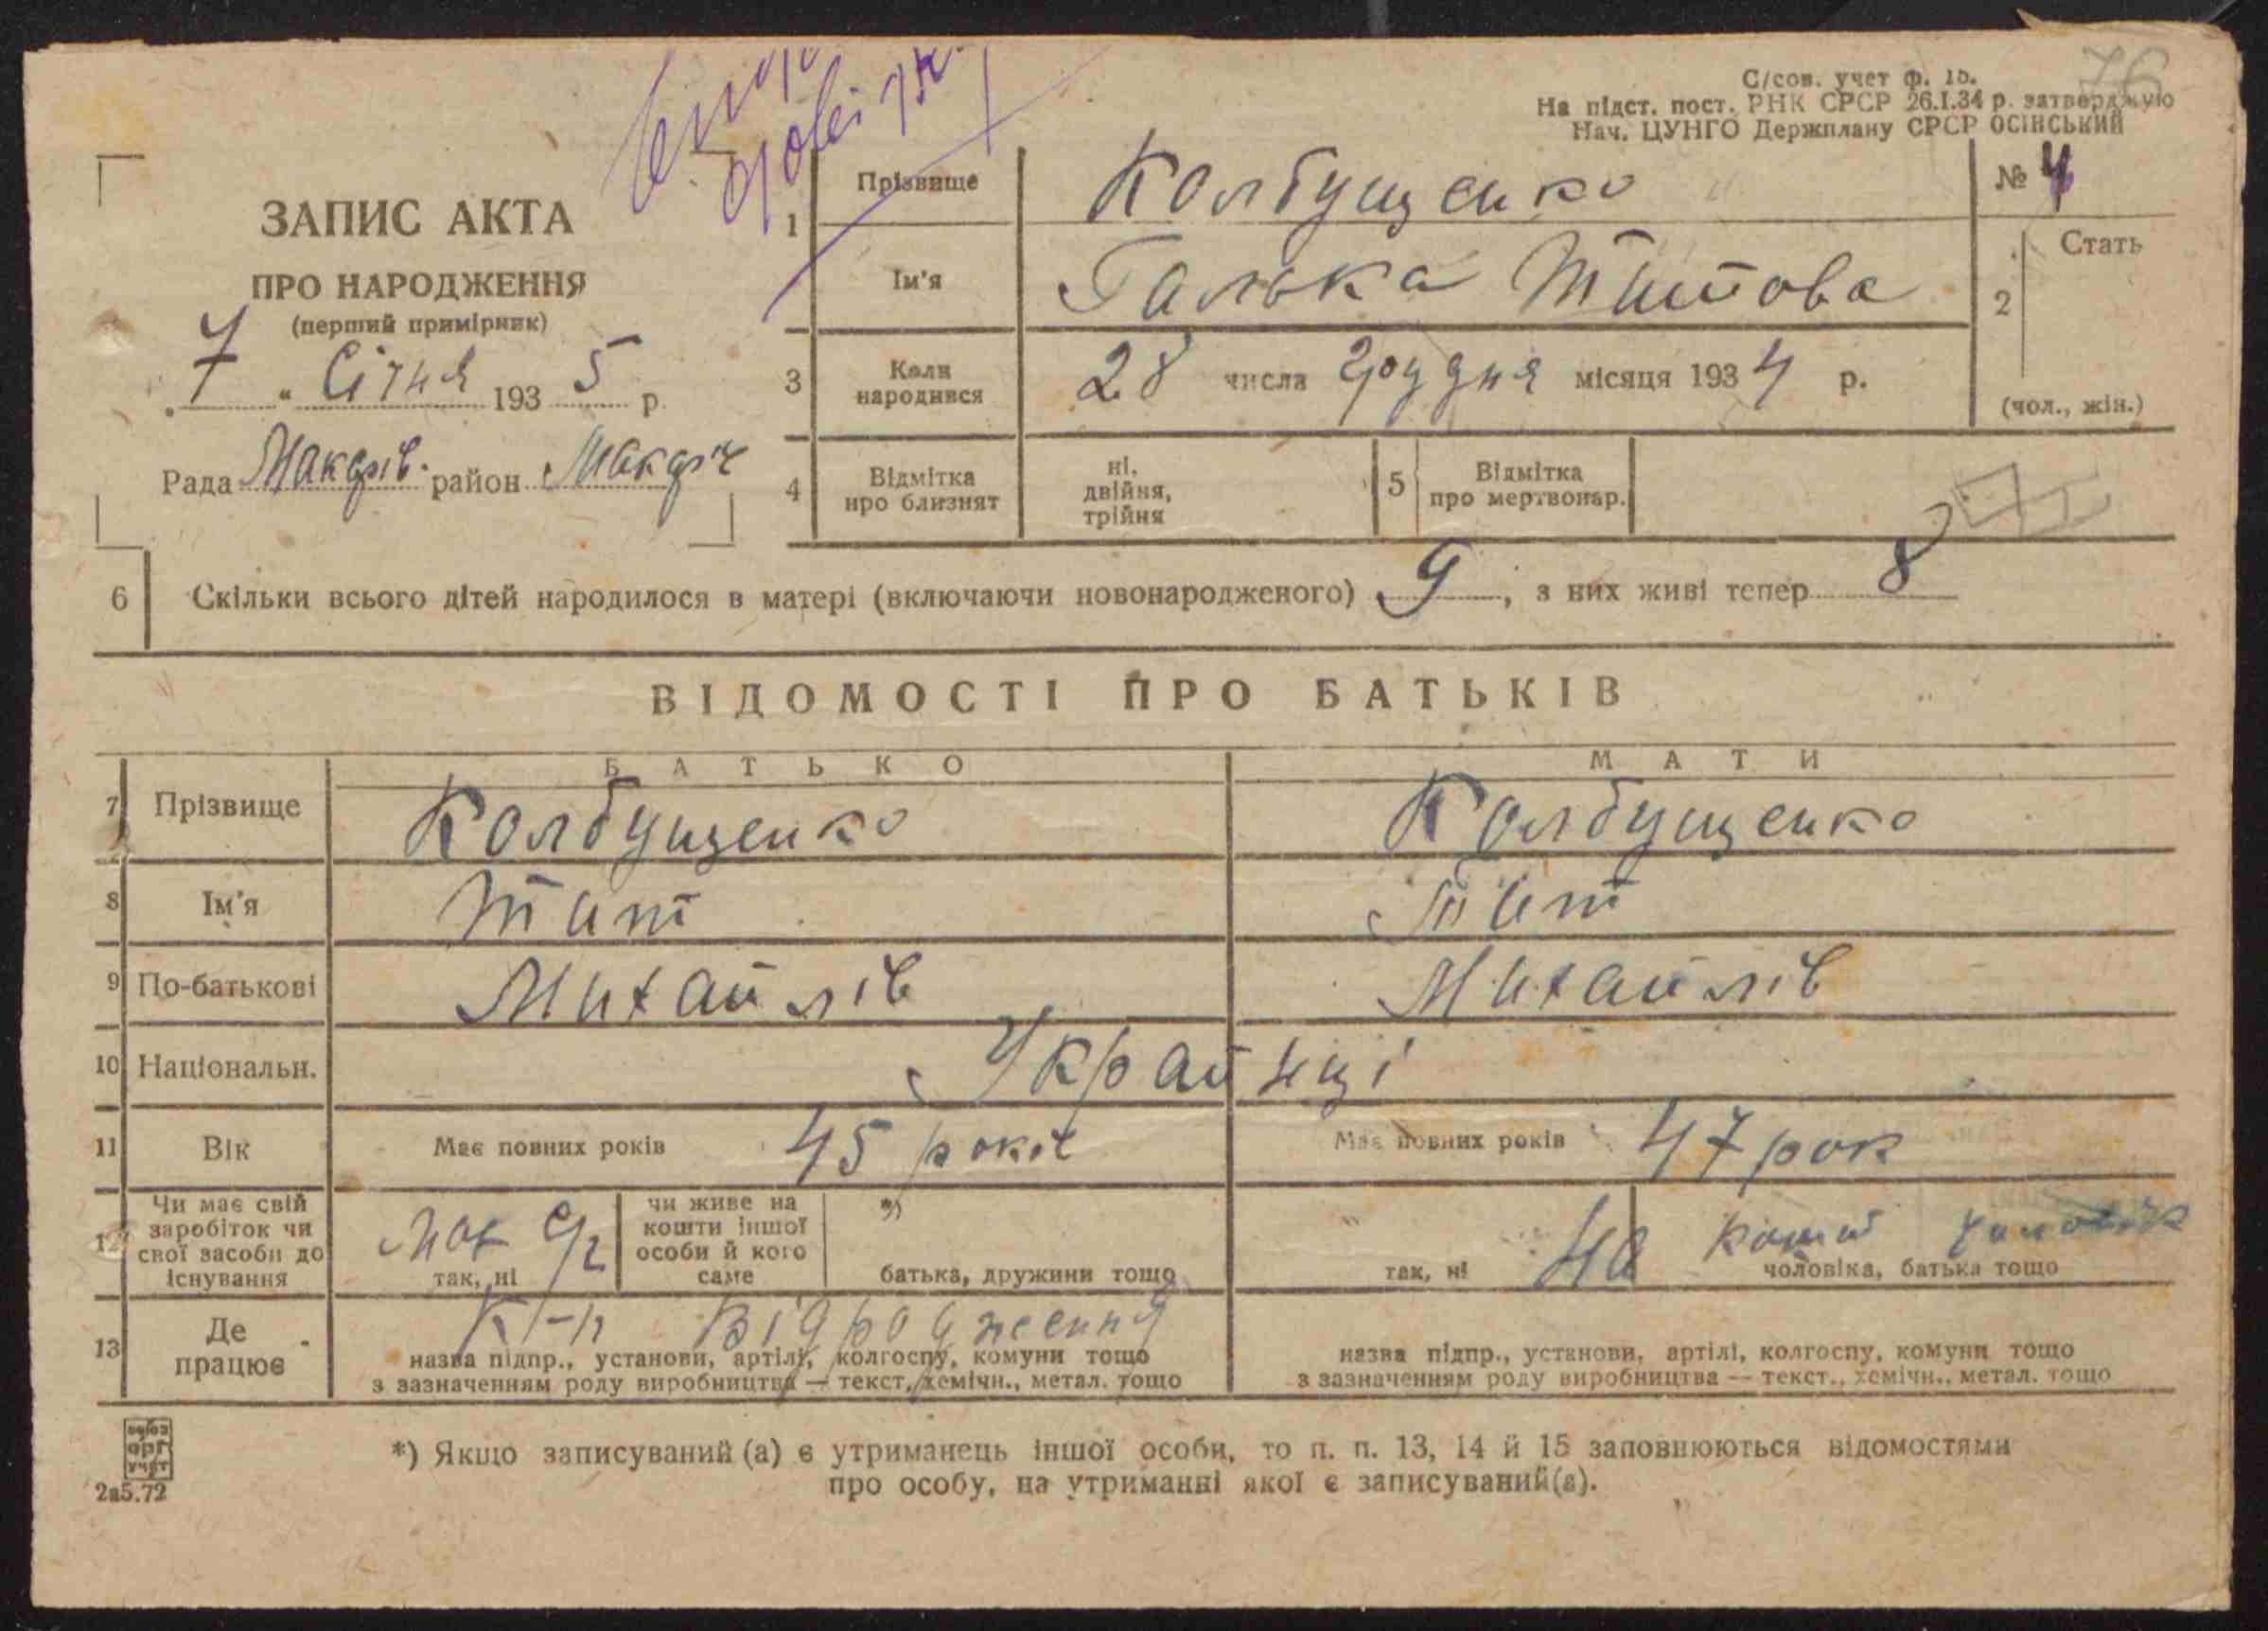 76
С/сов. учет ф. 15.
На підст. пост. РНК СРСР 26.I.34 р. затверджую
Нач. ЦУНГО Держплану СРСР ОСІНСЬКИЙ
ЗАПИС АКТА
ПРО НАРОДЖЕННЯ
(перший примірник)
„ 7 “ Січня 193 5 р.
Рада Макарів. район Макарів
1 Прізвище Колбущенко
№ 4
Ім'я Галька Титова
2 Стать
(чол., жін.)
3 Коли народився 28 числа грудня місяця 193 4 р.
4 Відмітка про близнят ні, двійня, трійня
5 Відмітка про мертвонар.
6 Скільки всього дітей народилося в матері (включаючи новонародженого) 9, з них живі тепер 8
ВІДОМОСТІ ПРО БАТЬКІВ
БАТЬКО МАТИ
7 Прізвище Колбущенко Колбущенко
8 Ім'я Тит Тит
9 По-батькові Михайлів Михайлів
10 Національн. Українці
11 Вік Має повних років 45 років Має повних років 47 рок
12 Чи має свій заробіток чи свої засоби до існування
так, ні
чи живе на кошти іншої особи й кого саме
*)
батька, дружини тощо
так, ні
На кошти
чоловіка, батька тощо
13 Де працює К-п Відродження
назва підпр., установи, артілі, колгоспу, комуни тощо
з зазначенням роду виробництва — текст., хемічн., метал. тощо
назва підпр., установи, артілі, колгоспу, комуни тощо
з зазначенням роду виробництва — текст., хемічн., метал. тощо
союз
орг
учет
2а5.72
*) Якщо записуваний (а) є утриманець іншої особи, то п. п. 13, 14 й 15 заповнюються відомостями
про особу, на утриманні якої є записуваний(а).